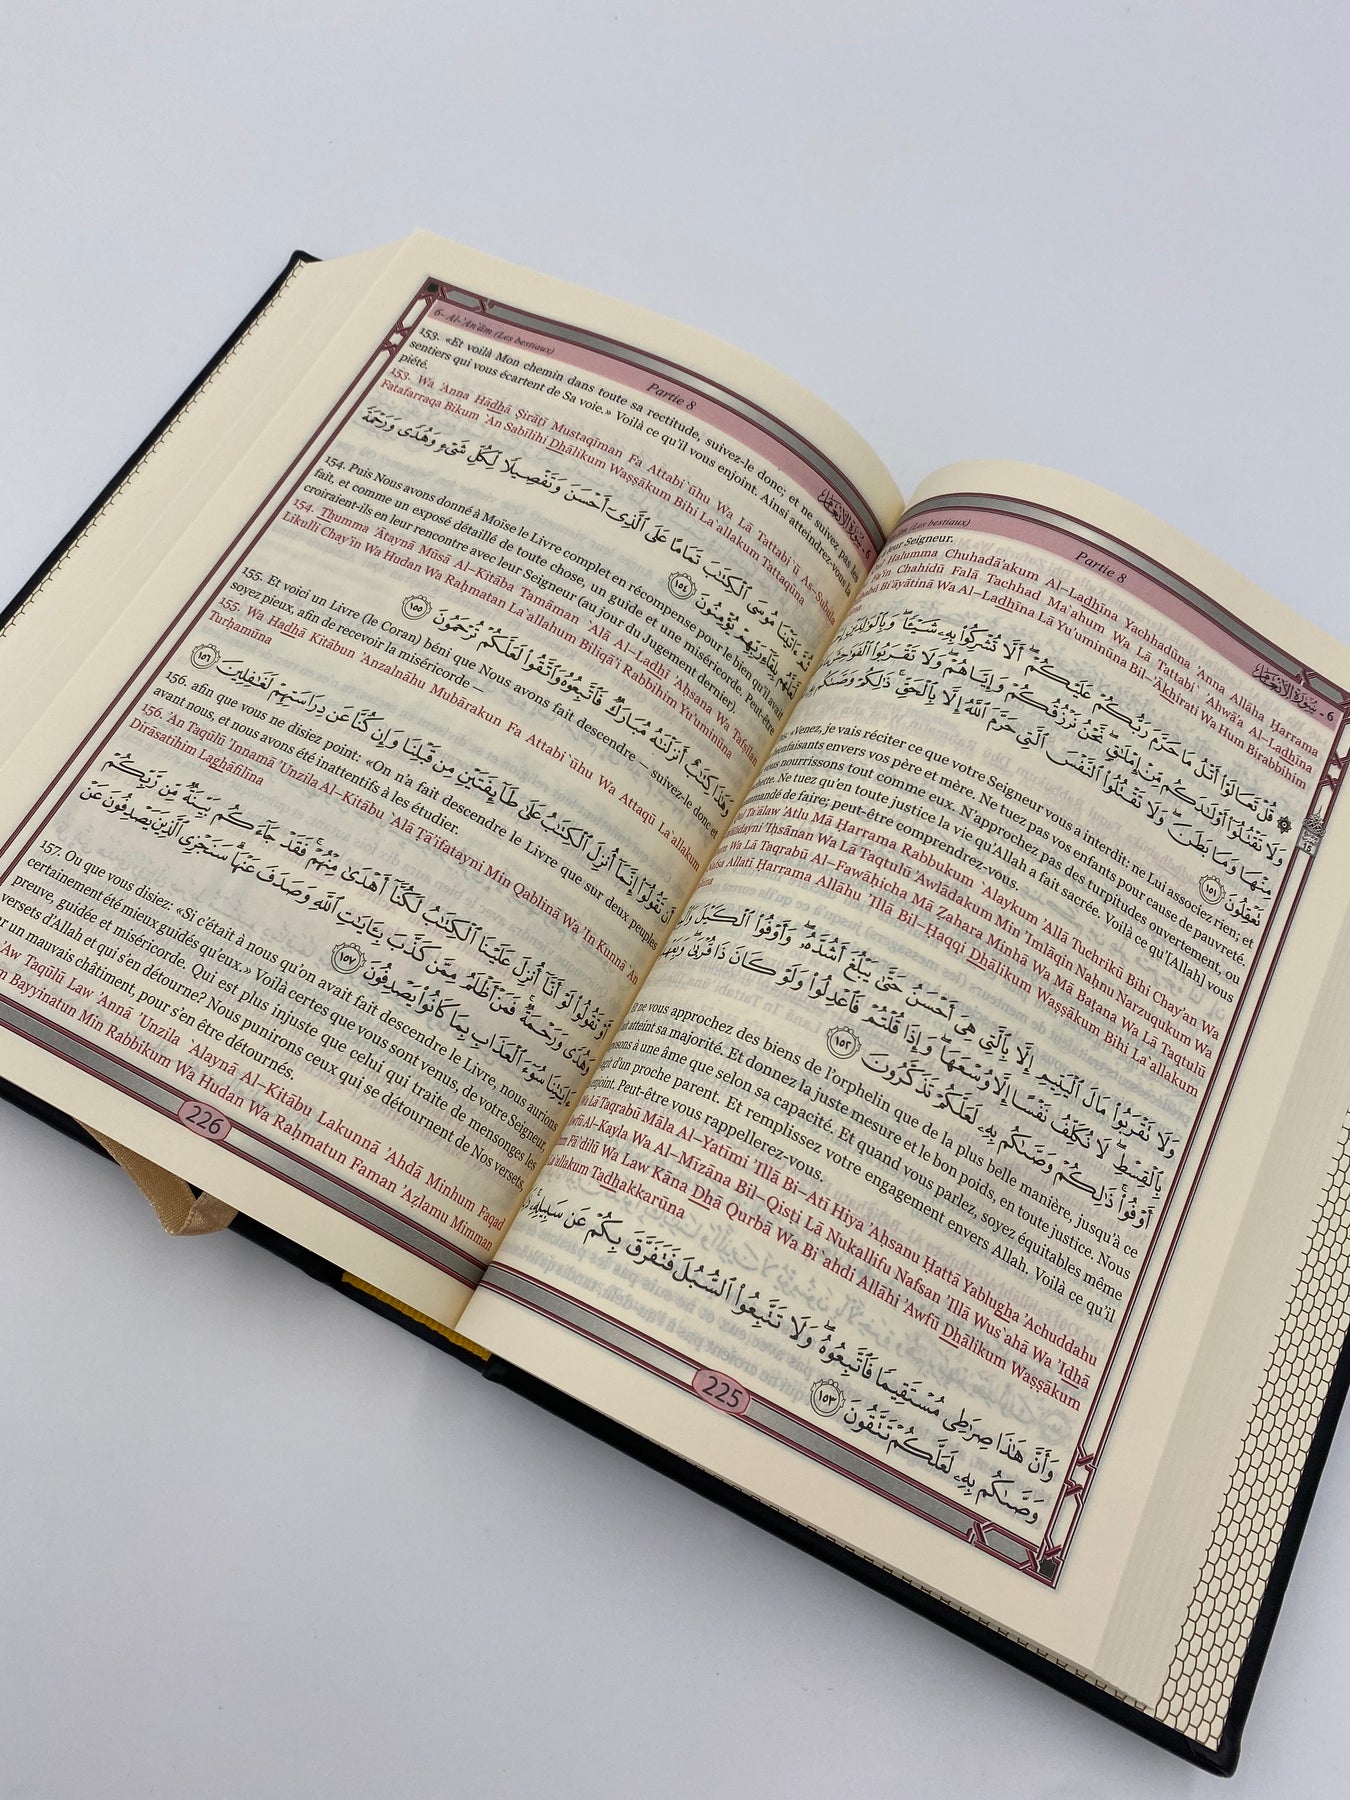 (Les bestiaux) Partie 8 ٦ - سُورَةُ الأَنْعَامِ
leur Seigneur.
Halumma Chuhadā'akum Al–Ladhīna Yachhadūna 'Anna Allāha Ĥarrama
Fa'in Chahidū Falā Tachhad Ma`ahum Wa Lā Tattabi` 'Ahwā'a Al–Ladhīna
Bi'āyātinā Wa Al–Ladhīna Lā Yu'uminūna Bil–'Ākhirati Wa Hum Birabbihim
۞ قُلْ تَعَالَوْا۟ أَتْلُ مَا حَرَّمَ رَبُّكُمْ عَلَيْكُمْ أَلَّا تُشْرِكُوا۟ بِهِۦ شَيْـًٔا وَبِٱلْوَٰلِدَيْنِ
وَلَا تَقْتُلُوٓا۟ أَوْلَـٰدَكُم مِّنْ إِمْلَـٰقٍ نَّحْنُ نَرْزُقُكُمْ وَإِيَّاهُمْ وَلَا تَقْرَبُوا۟ ٱلْفَوَٰحِشَ
مِنْهَا وَمَا بَطَنَ وَلَا تَقْتُلُوا۟ ٱلنَّفْسَ ٱلَّتِى حَرَّمَ ٱللَّهُ إِلَّا بِٱلْحَقِّ ذَٰلِكُمْ وَصَّىٰكُم
تَعْقِلُونَ ١٥١
«Venez, je vais réciter ce que votre Seigneur vous a interdit: ne Lui associez rien; et
bienfaisants envers vos père et mère. Ne tuez pas vos enfants pour cause de pauvreté.
nourrissons tout comme eux. N'approchez pas des turpitudes ouvertement, ou
Ne tuez qu'en toute justice la vie qu'Allah a fait sacrée. Voilà ce qu'[Allah] vous
de faire; peut-être comprendrez-vous.
Ta`ālaw 'Atlu Mā Ĥarrama Rabbukum `Alaykum 'Allā Tuchrikū Bihi Chay'an Wa
'Iĥsānan Wa Lā Taqtulū 'Awlādakum Min 'Imlāqin Naĥnu Narzuqukum Wa
Wa Lā Taqrabū Al–Fawāĥicha Mā Žahara Minhā Wa Mā Baţana Wa Lā Taqtulū
Allatī Ĥarrama Allāhu 'Illā Bil–Ĥaqqi Dhālikum Waşşākum Bihi La`allakum
وَلَا تَقْرَبُوا۟ مَالَ ٱلْيَتِيمِ إِلَّا بِٱلَّتِى هِىَ أَحْسَنُ حَتَّىٰ يَبْلُغَ أَشُدَّهُۥ وَأَوْفُوا۟ ٱلْكَيْلَ
بِٱلْقِسْطِ لَا نُكَلِّفُ نَفْسًا إِلَّا وُسْعَهَا وَإِذَا قُلْتُمْ فَٱعْدِلُوا۟ وَلَوْ كَانَ ذَا قُرْبَىٰ
أَوْفُوا۟ ذَٰلِكُمْ وَصَّىٰكُم بِهِۦ لَعَلَّكُمْ تَذَكَّرُونَ ١٥٢
Et ne vous approchez des biens de l'orphelin que de la plus belle manière, jusqu'à ce
atteint sa majorité. Et donnez la juste mesure et le bon poids, en toute justice. Nous
à une âme que selon sa capacité. Et quand vous parlez, soyez équitables même
d'un proche parent. Et remplissez votre engagement envers Allah. Voilà ce qu'il
enjoint. Peut-être vous rappellerez-vous.
Lā Taqrabū Māla Al–Yatīmi 'Illā Bi–Atī Hiya 'Aĥsanu Ĥattá Yablugha 'Achuddahu
Al–Kayla Wa Al–Mīzāna Bil–Qisţi Lā Nukallifu Nafsan 'Illā Wus`ahā Wa 'Idhā
Fā`dilū Wa Law Kāna Dhā Qurbá Wa Bi`ahdi Allāhi 'Awfū Dhālikum Waşşākum
La`allakum Tadhakkarūna
وَأَنَّ هَـٰذَا صِرَٰطِى مُسْتَقِيمًا فَٱتَّبِعُوهُ وَلَا تَتَّبِعُوا۟ ٱلسُّبُلَ فَتَفَرَّقَ بِكُمْ عَن سَبِيلِهِۦ
وَصَّىٰكُم بِهِۦ لَعَلَّكُمْ تَتَّقُونَ ١٥٣
225
6– Al–'An`ām (Les bestiaux) Partie 8 ٦ - سُورَةُ الأَنْعَامِ
153. «Et voilà Mon chemin dans toute sa rectitude, suivez-le donc; et ne suivez pas les
sentiers qui vous écartent de Sa voie.» Voilà ce qu'il vous enjoint. Ainsi atteindrez-vous la
piété.
153. Wa 'Anna Hādhā Şirāţī Mustaqīman Fa Attabi`ūhu Wa Lā Tattabi`ū As–Subula
Fatafarraqa Bikum `An Sabīlihi Dhālikum Waşşākum Bihi La`allakum Tattaqūna
ثُمَّ ءَاتَيْنَا مُوسَى ٱلْكِتَـٰبَ تَمَامًا عَلَى ٱلَّذِىٓ أَحْسَنَ وَتَفْصِيلًا لِّكُلِّ شَىْءٍ وَهُدًى وَرَحْمَةً
لَّعَلَّهُم بِلِقَآءِ رَبِّهِمْ يُؤْمِنُونَ ١٥٤
154. Puis Nous avons donné à Moïse le Livre complet en récompense pour le bien qu'il avait
fait, et comme un exposé détaillé de toute chose, un guide et une miséricorde. Peut-être
croiraient-ils en leur rencontre avec leur Seigneur (au jour du Jugement dernier).
154. Thumma 'Ātaynā Mūsá Al–Kitāba Tamāman `Alá Al–Ladhī 'Aĥsana Wa Tafşīlan
Likulli Chay'in Wa Hudan Wa Raĥmatan La`allahum Biliqā'i Rabbihim Yu'uminūna
وَهَـٰذَا كِتَـٰبٌ أَنزَلْنَـٰهُ مُبَارَكٌ فَٱتَّبِعُوهُ وَٱتَّقُوا۟ لَعَلَّكُمْ تُرْحَمُونَ ١٥٥
155. Et voici un Livre (le Coran) béni que Nous avons fait descendre – suivez-le donc et
soyez pieux, afin de recevoir la miséricorde –
155. Wa Hadhā Kitābun 'Anzalnāhu Mubārakun Fa Attabi`ūhu Wa Attaqū La`allakum
Turĥamūna
أَن تَقُولُوٓا۟ إِنَّمَآ أُنزِلَ ٱلْكِتَـٰبُ عَلَىٰ طَآئِفَتَيْنِ مِن قَبْلِنَا وَإِن كُنَّا عَن دِرَاسَتِهِمْ لَغَـٰفِلِينَ ١٥٦
156. afin que vous ne disiez point: «On n'a fait descendre le Livre que sur deux peuples
avant nous, et nous avons été inattentifs à les étudier.
156. 'An Taqūlū 'Innamā 'Unzila Al–Kitābu `Alá Ţā'ifatayni Min Qablinā Wa 'In Kunnā `An
Dirāsatihim Laghāfilīna
أَوْ تَقُولُوا۟ لَوْ أَنَّآ أُنزِلَ عَلَيْنَا ٱلْكِتَـٰبُ لَكُنَّآ أَهْدَىٰ مِنْهُمْ فَقَدْ جَآءَكُم بَيِّنَةٌ مِّن رَّبِّكُمْ
وَهُدًى وَرَحْمَةٌ فَمَنْ أَظْلَمُ مِمَّن كَذَّبَ بِـَٔايَـٰتِ ٱللَّهِ وَصَدَفَ عَنْهَا سَنَجْزِى ٱلَّذِينَ يَصْدِفُونَ عَنْ
ءَايَـٰتِنَا سُوٓءَ ٱلْعَذَابِ بِمَا كَانُوا۟ يَصْدِفُونَ ١٥٧
157. Ou que vous disiez: «Si c'était à nous qu'on avait fait descendre le Livre, nous aurions
certainement été mieux guidés qu'eux.» Voilà certes que vous sont venus, de votre Seigneur,
preuve, guidée et miséricorde. Qui est plus injuste que celui qui traite de mensonges les
versets d'Allah et qui s'en détourne? Nous punirons ceux qui se détournent de Nos versets,
un mauvais châtiment, pour s'en être détournés.
'Aw Taqūlū Law 'Annā 'Unzila `Alaynā Al–Kitābu Lakunnā 'Ahdá Minhum Faqad
Bayyinatun Min Rabbikum Wa Hudan Wa Raĥmatun Faman 'Ažlamu Mimman
226